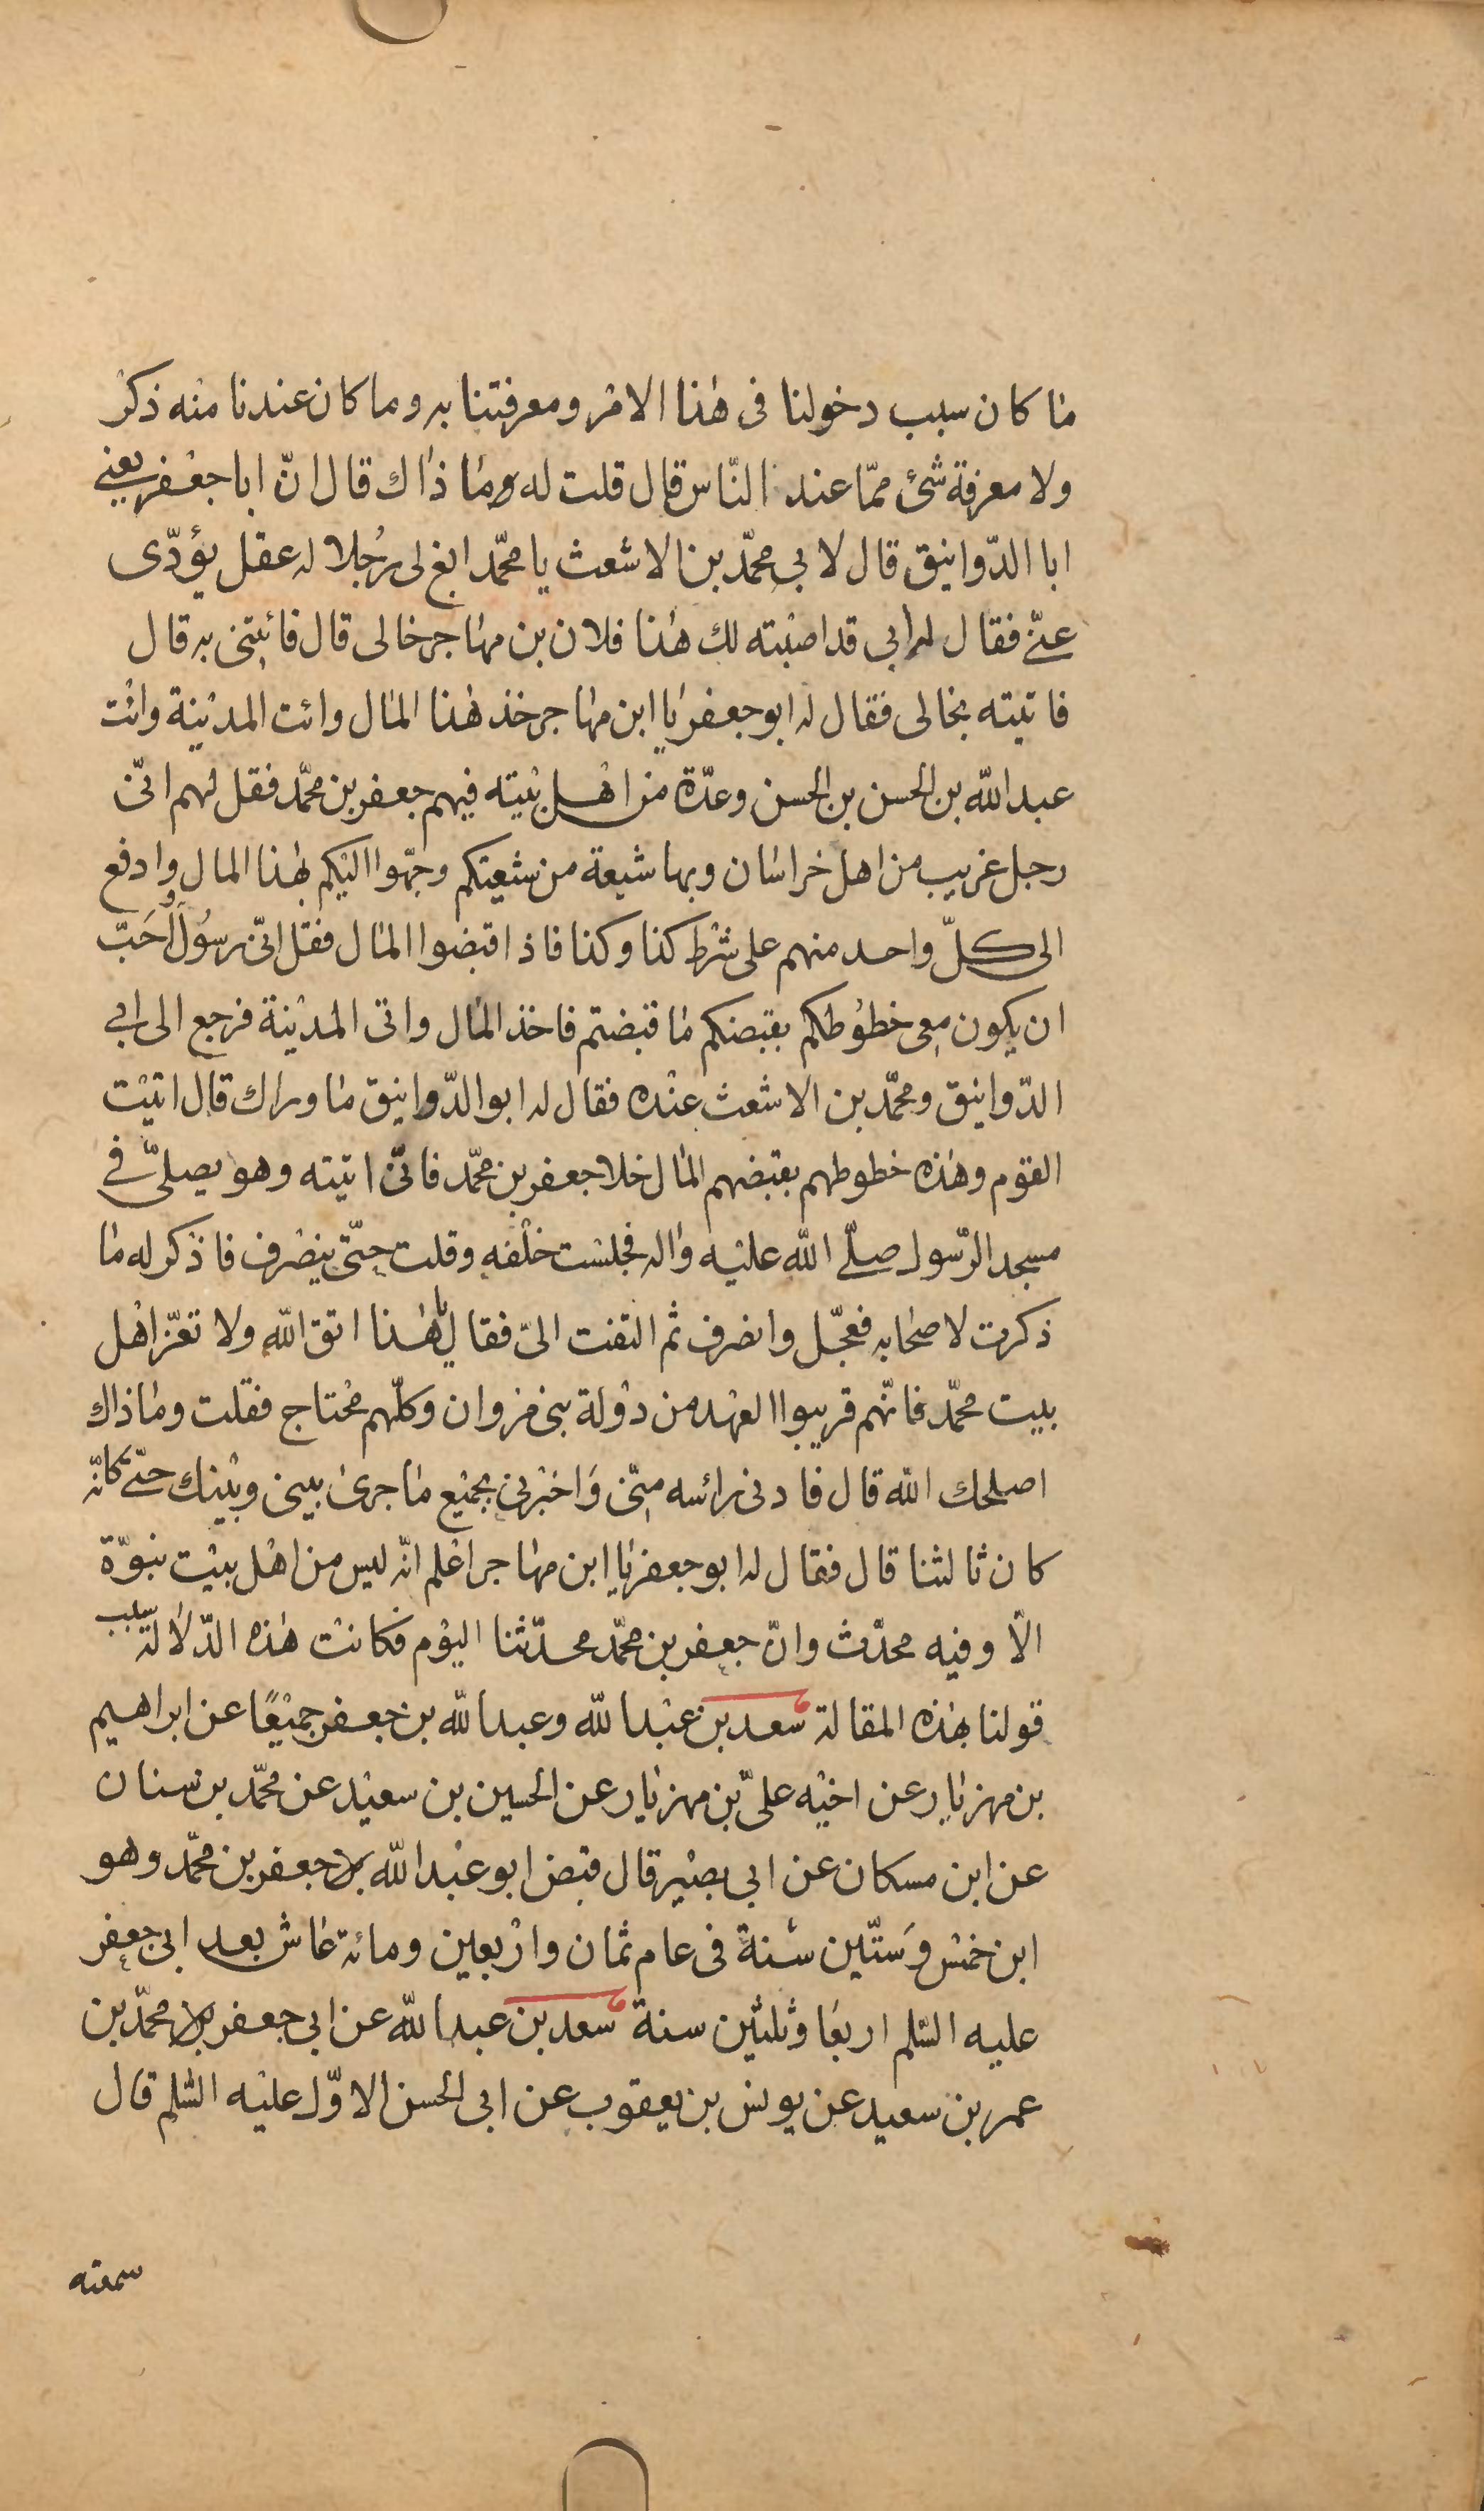 ما كان سبب دخولنا فى هذا الامر ومعرفتنا به وما كان عندنا منه ذكر
ولا معرفة شئ ممّا عند النّاس قال قلت له وما ذاك قال انّ ابا جعفر يعنى
ابا الدّوانيق قال لابي محمّد بن الاشعث يا محمّد ابغ لى رجُلا له عقل يؤدّى
عنّى فقال له ابي قد اصبته لك هذا فلان بن مهاجر خالى قال فائتنى به قال
فاتيته بخالى فقال له ابو جعفر يا ابن مهاجر خذ هذا المال وائت المدينة وائت
عبد الله بن الحسن بن الحسن وعدّة من اهل بيته فيهم جعفر بن محمّد فقل لهم انّى
رجل غريب من اهل خراسان وبها شيعة من شيعتكم وجّهوا اليكم بهذا المال وادفع
الى كلّ واحد منهم على شرط كذا وكذا فاذا قبضوا المال فقل انّى رسُول وأُحَبّ
ان يكون معى خطوُطكم بقبضكم ما قبضتم فاخذ المال واتى المدينة فرجع الى ابي
الدّوانيق ومحمّد بن الاشعث عنده فقال له ابو الدّوانيق ما وراك قال اتيت
القوم وهذه خطوطهم بقبضهم المال خلا جعفر بن محمّد فانّى اتيته وهو يصلّى فى
مسجد الرّسول صلّى الله عليه واله فجلست خلفه وقلت حتّى ينصرف فاذكر له ما
ذكرت لاصحابه فعجّل وانصرف ثم التفت الىّ فقال يا هذا اتق الله ولا تغرّ اهل
بيت محمّد فانّهم قريبوا العهد من دولة بنى مروان وكلّهم محتاج فقلت وما ذاك
اصلحك الله قال فادنى رائسه منّى وَاخبرنى بجميع ما جرى بينى وبينك حتّى كانّه
كان ثالثنا قال فقال له ابو جعفر يا ابن مهاجر اعلم انّه ليس من اهل بيت نبوّة
الّا وفيه محدّث وانّ جعفر بن محمّد محدّثنا اليوم فكانت هذه الدّلالة سبب
قولنا بهذه المقالة سعد بن عبد الله وعبد الله بن جعفر جميعًا عن ابراهيم
بن مهزيار عن اخيه علىّ بن مهزيار عن الحسين بن سعيد عن محمّد بن سنان
عن ابن مسكان عن ابى بصير قال قبض ابو عبد الله جعفر بن محمّد وهو
ابن خمس وَستّين سنة فى عام ثمان واربعين ومائة عاش بعد ابى جعفر
عليه السّلم اربعًا وثلثين سنة سعد بن عبد الله عن ابى جعفر محمّد بن
عمر بن سعيد عن يونس بن يعقوب عن ابى الحسن الاوّل عليه السّلم قال
سمعته